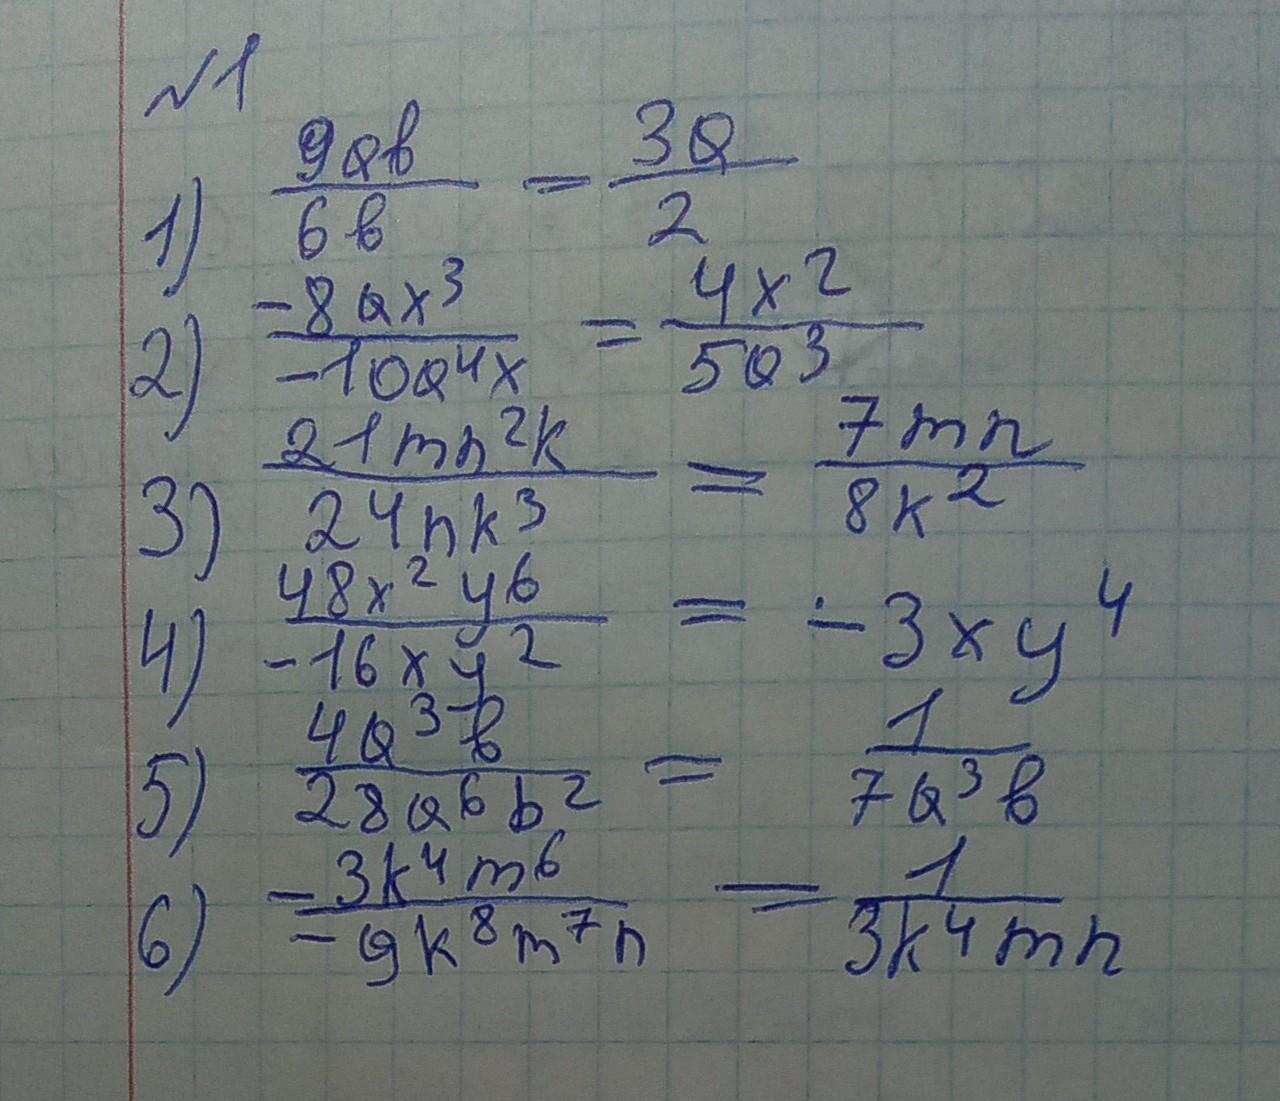 №1
1) 9ab/6b = 3a/2
2) -8ax³/-10a⁴x = 4x²/5a³
3) 21mn²k/24nk³ = 7mn/8k²
4) 48x²y⁶/-16xy² = -3xy⁴
5) 4a³b/28a⁶b² = 1/7a³b
6) -3k⁴m⁶/-9k⁸m⁷n = 1/3k⁴mn